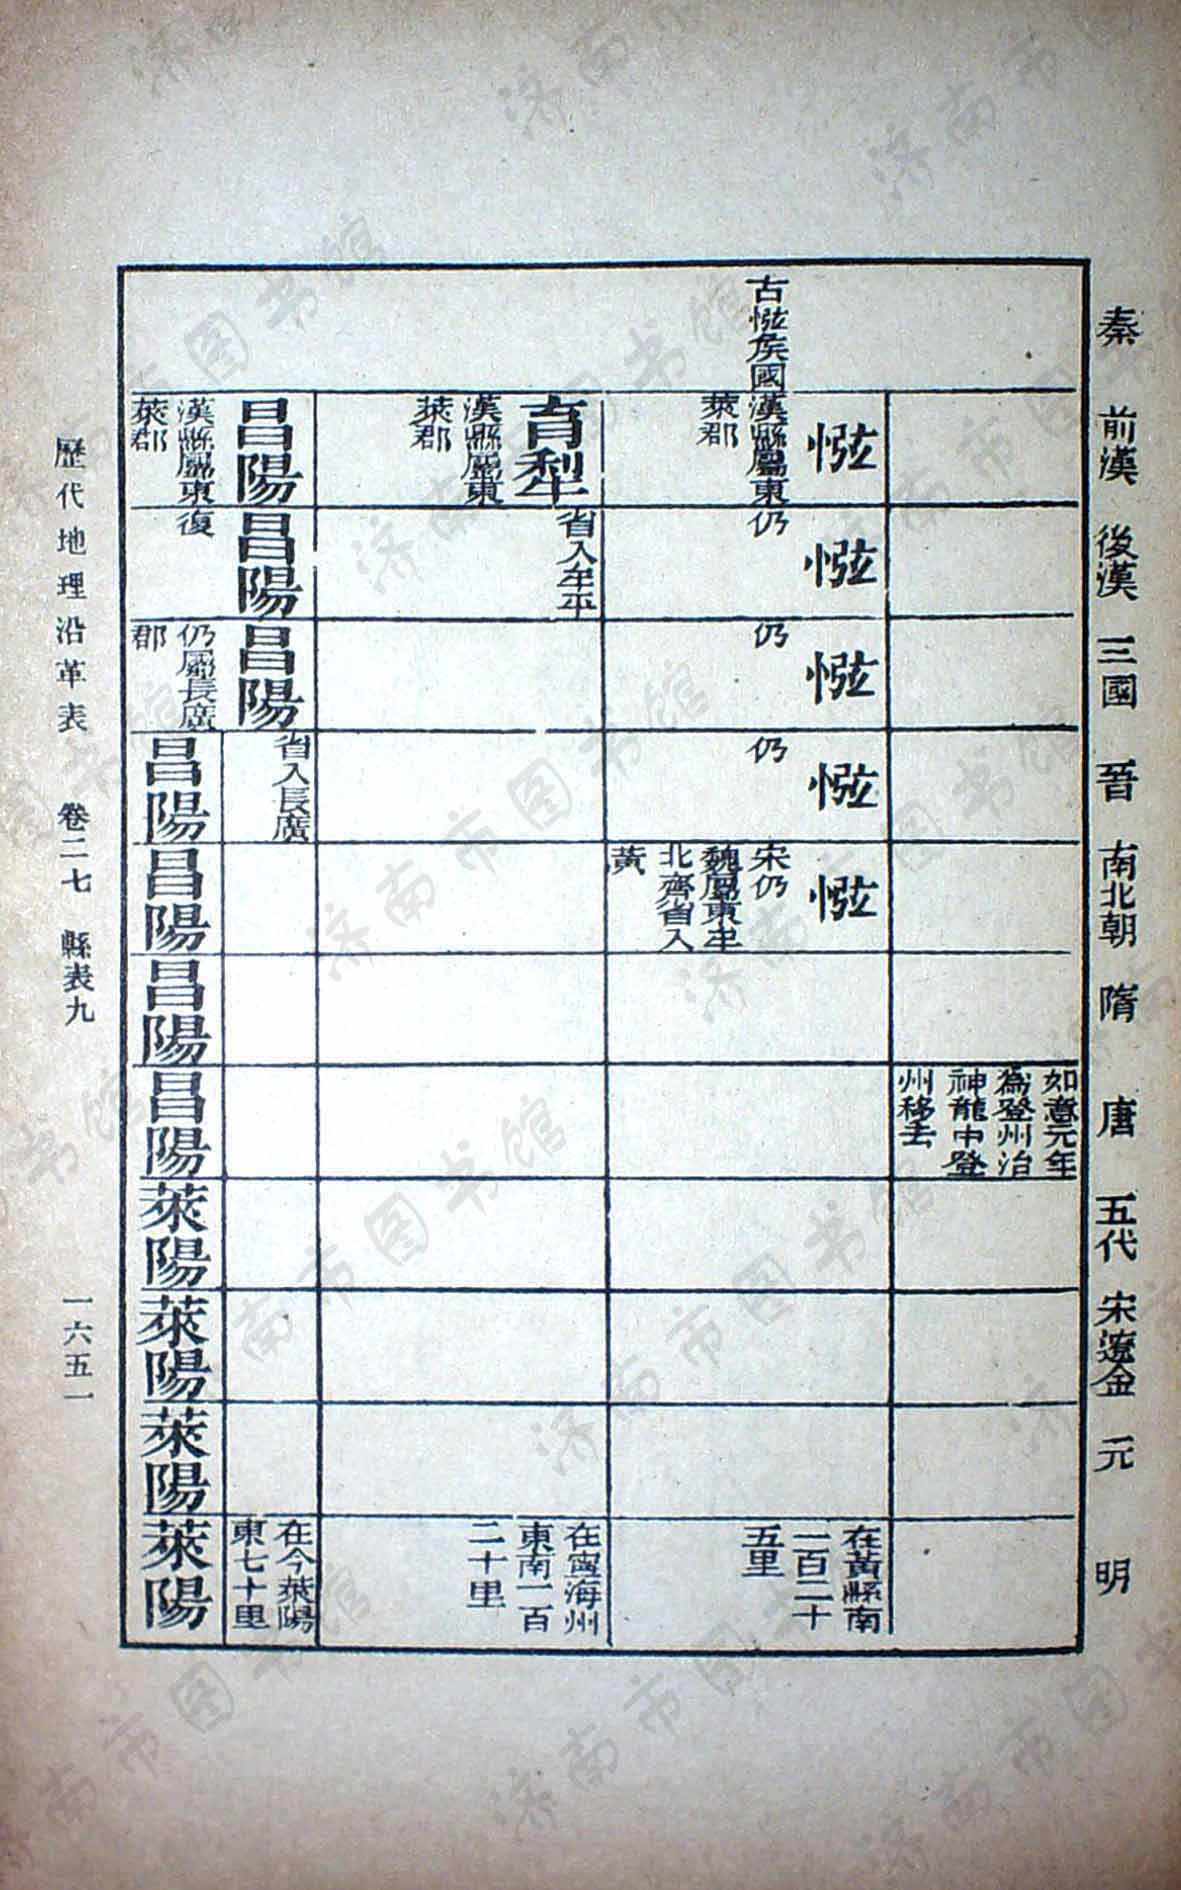 秦
前漢
後漢
三國
晉
南北朝
隋
唐
五代
宋遼金
元
明
如意元年
為登州治
神龍中登
州移去
古㡉侯國
㡉
漢縣屬東
萊郡
㡉
仍
㡉
仍
㡉
仍
㡉
宋仍
魏屬東牟
北齊省入
黃
在黃縣南
一百二十
五里
育犁
漢縣屬東
萊郡
省入牟平
在寧海州
東南一百
二十里
昌陽
漢縣屬東
萊郡
昌陽
復
昌陽
仍屬長廣
郡
省入長廣
在今萊陽
東七十里
昌陽
昌陽
昌陽
昌陽
萊陽
萊陽
萊陽
萊陽
歷代地理沿革表 卷二七 縣表九 一六五一